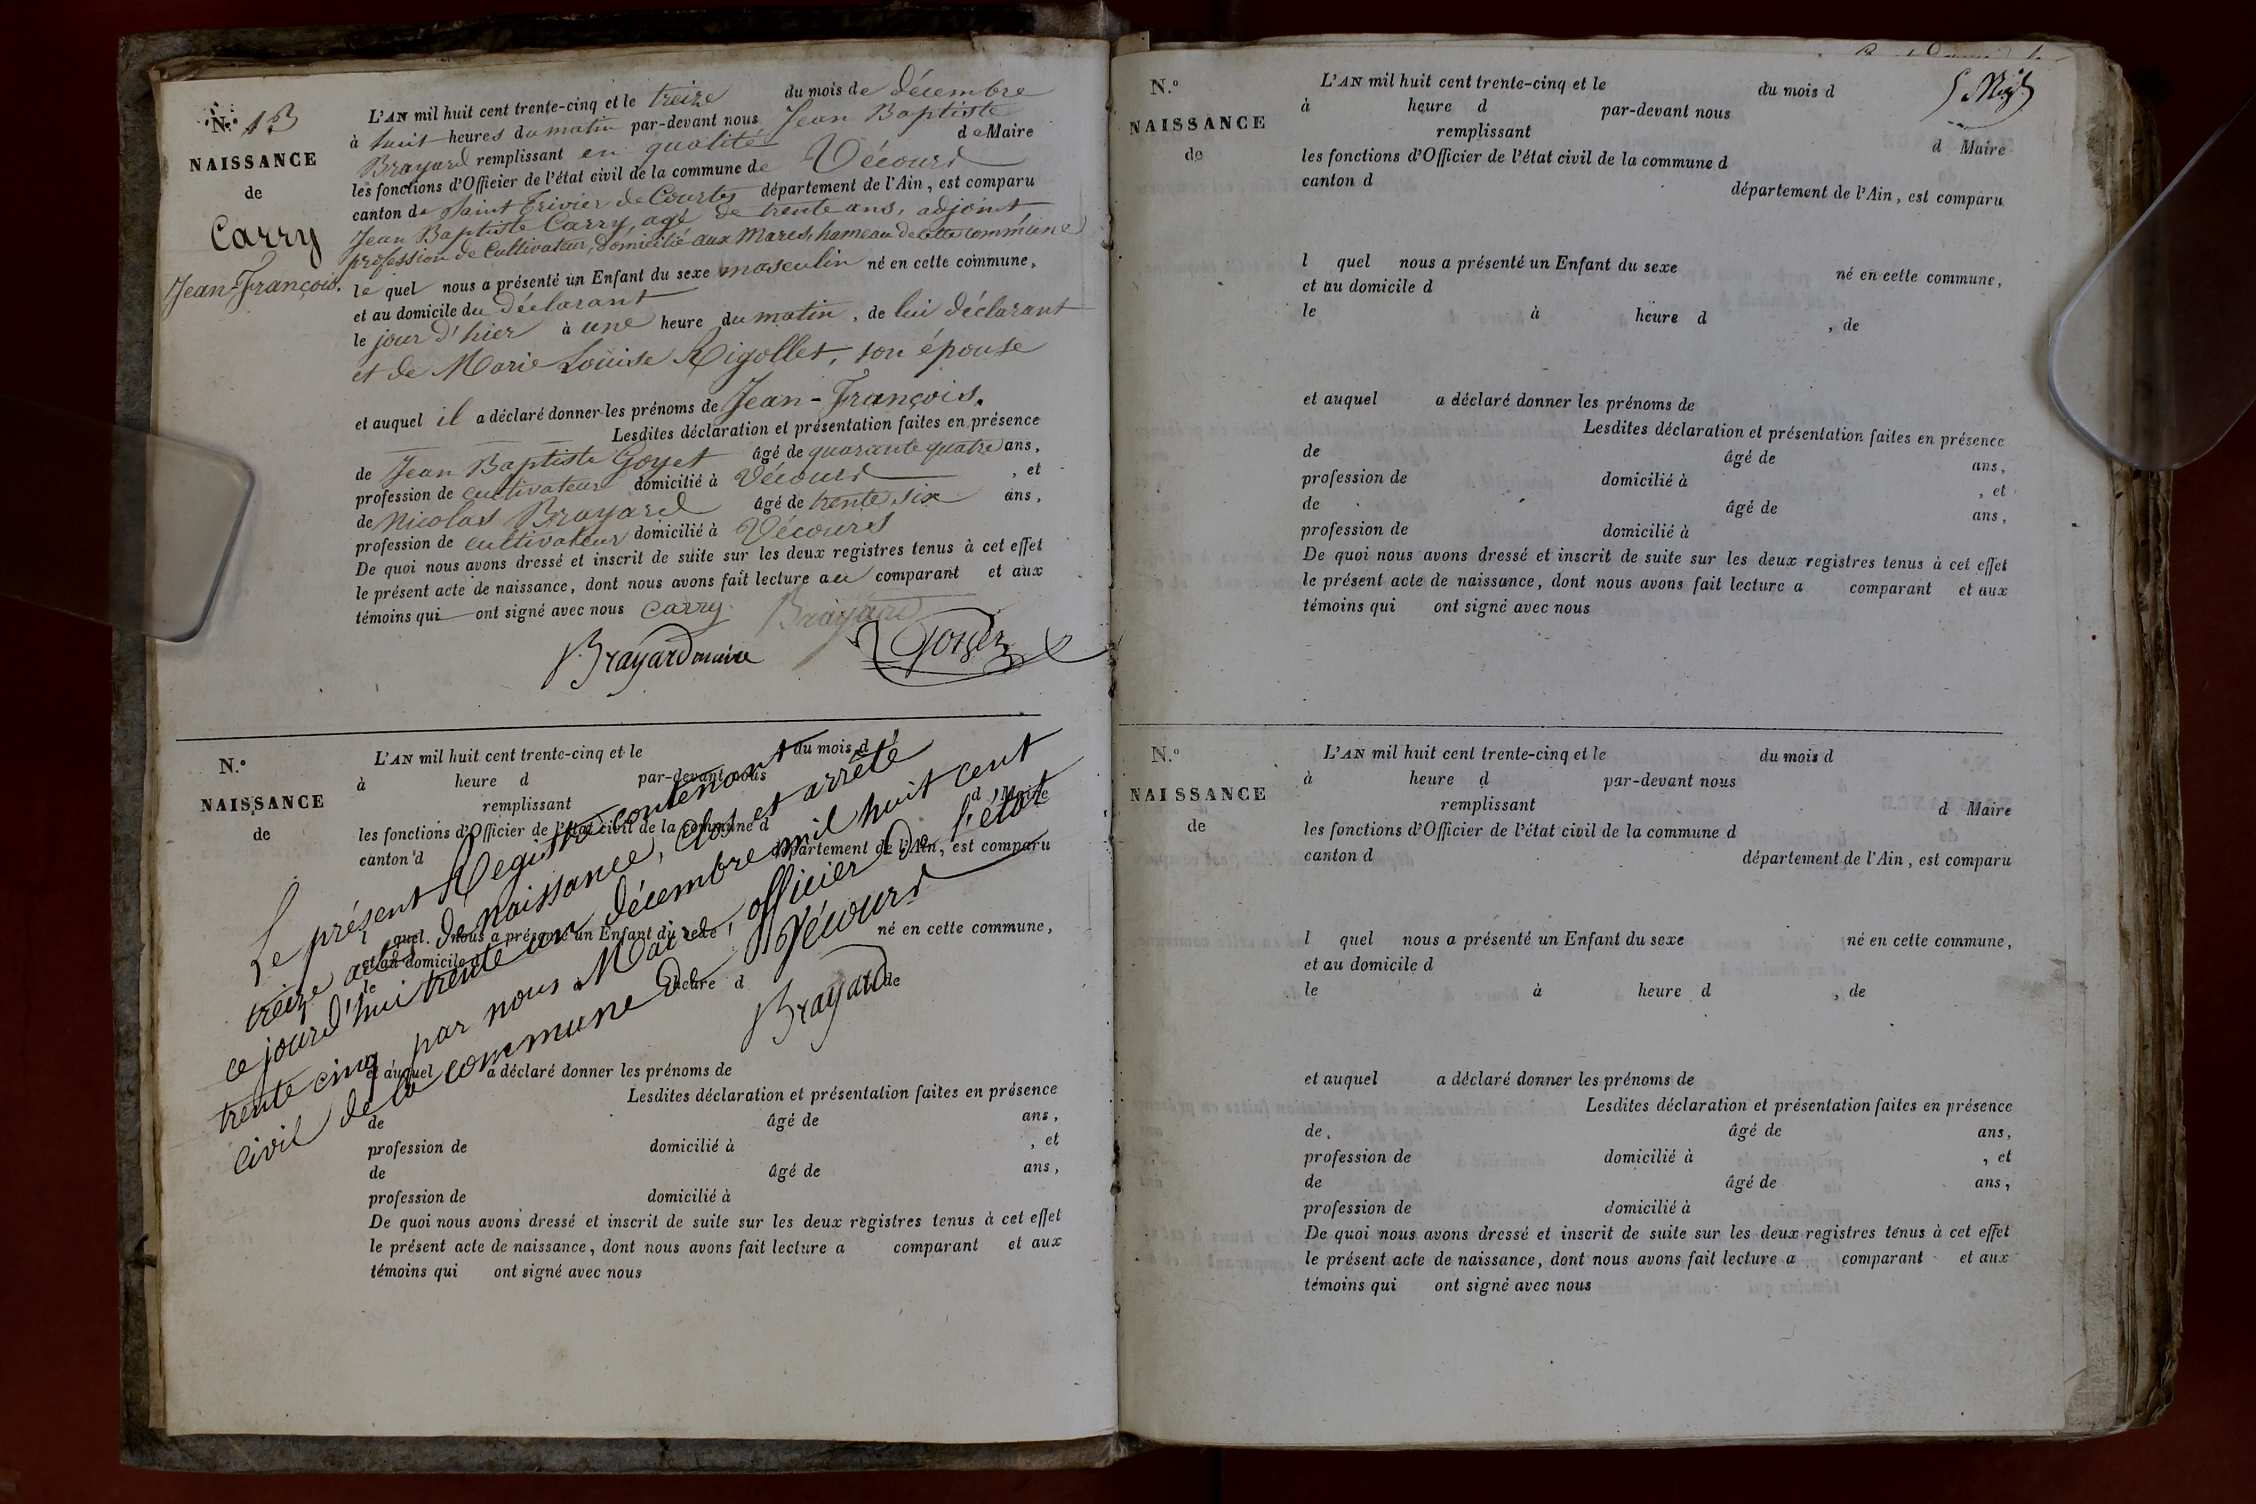 N.º 13
NAISSANCE
de
Carry
Jean-François.
L'AN mil huit cent trente-cinq et le treize du mois de décembre
à huit heures du matin par-devant nous Jean Baptiste
Brayard remplissant en qualité de Maire
les fonctions d'Officier de l'état civil de la commune de Vécours
canton de Saint Trivier de Courtes département de l'Ain, est comparu
Jean Baptiste Carry, agé de trente ans, adjoint,
profession de cultivateur, domicilié aux Mares, hameau de cette commune
le quel nous a présenté un Enfant du sexe masculin né en cette commune,
et au domicile du déclarant
le jour d'hier à une heure du matin, de lui déclarant
et de Marie Louise Rigollet, son épouse
et auquel il a déclaré donner les prénoms de Jean-François.
Lesdites déclaration et présentation faites en présence
de Jean Baptiste Goyet âgé de quarante quatre ans,
profession de cultivateur domicilié à Vécours, et
de Nicolas Brayard âgé de trente six ans,
profession de cultivateur domicilié à Vécours
De quoi nous avons dressé et inscrit de suite sur les deux registres tenus à cet effet
le présent acte de naissance, dont nous avons fait lecture au comparant et aux
témoins qui ont signé avec nous Carry Brayard
Brayard maire Goyet
N.º
NAISSANCE
de
L'AN mil huit cent trente-cinq et le du mois d
à heure d par-devant nous
remplissant d Maire
les fonctions d'Officier de l'état civil de la commune d
canton d département de l'Ain, est comparu
l quel nous a présenté un Enfant du sexe né en cette commune,
et au domicile d
le à heure d , de
et auquel a déclaré donner les prénoms de
Lesdites déclaration et présentation faites en présence
de âgé de ans,
profession de domicilié à , et
de âgé de ans,
profession de domicilié à
De quoi nous avons dressé et inscrit de suite sur les deux registres tenus à cet effet
le présent acte de naissance, dont nous avons fait lecture a comparant et aux
témoins qui ont signé avec nous
Le présent Registre contenant
treize actes de naissance, clos et arrêté
ce jourd'hui trente un décembre mil huit cent
trente cinq par nous Maire, officier de l'état
civil de la commune de Vécours
Brayard
N.º
NAISSANCE
de
L'AN mil huit cent trente-cinq et le du mois d
à heure d par-devant nous
remplissant d Maire
les fonctions d'Officier de l'état civil de la commune d
canton d département de l'Ain, est comparu
l quel nous a présenté un Enfant du sexe né en cette commune,
et au domicile d
le à heure d , de
et auquel a déclaré donner les prénoms de
Lesdites déclaration et présentation faites en présence
de âgé de ans,
profession de domicilié à , et
de âgé de ans,
profession de domicilié à
De quoi nous avons dressé et inscrit de suite sur les deux registres tenus à cet effet
le présent acte de naissance, dont nous avons fait lecture a comparant et aux
témoins qui ont signé avec nous
N.º
NAISSANCE
de
L'AN mil huit cent trente-cinq et le du mois d
à heure d par-devant nous
remplissant d Maire
les fonctions d'Officier de l'état civil de la commune d
canton d département de l'Ain, est comparu
l quel nous a présenté un Enfant du sexe né en cette commune,
et au domicile d
le à heure d , de
et auquel a déclaré donner les prénoms de
Lesdites déclaration et présentation faites en présence
de âgé de ans,
profession de domicilié à , et
de âgé de ans,
profession de domicilié à
De quoi nous avons dressé et inscrit de suite sur les deux registres tenus à cet effet
le présent acte de naissance, dont nous avons fait lecture a comparant et aux
témoins qui ont signé avec nous